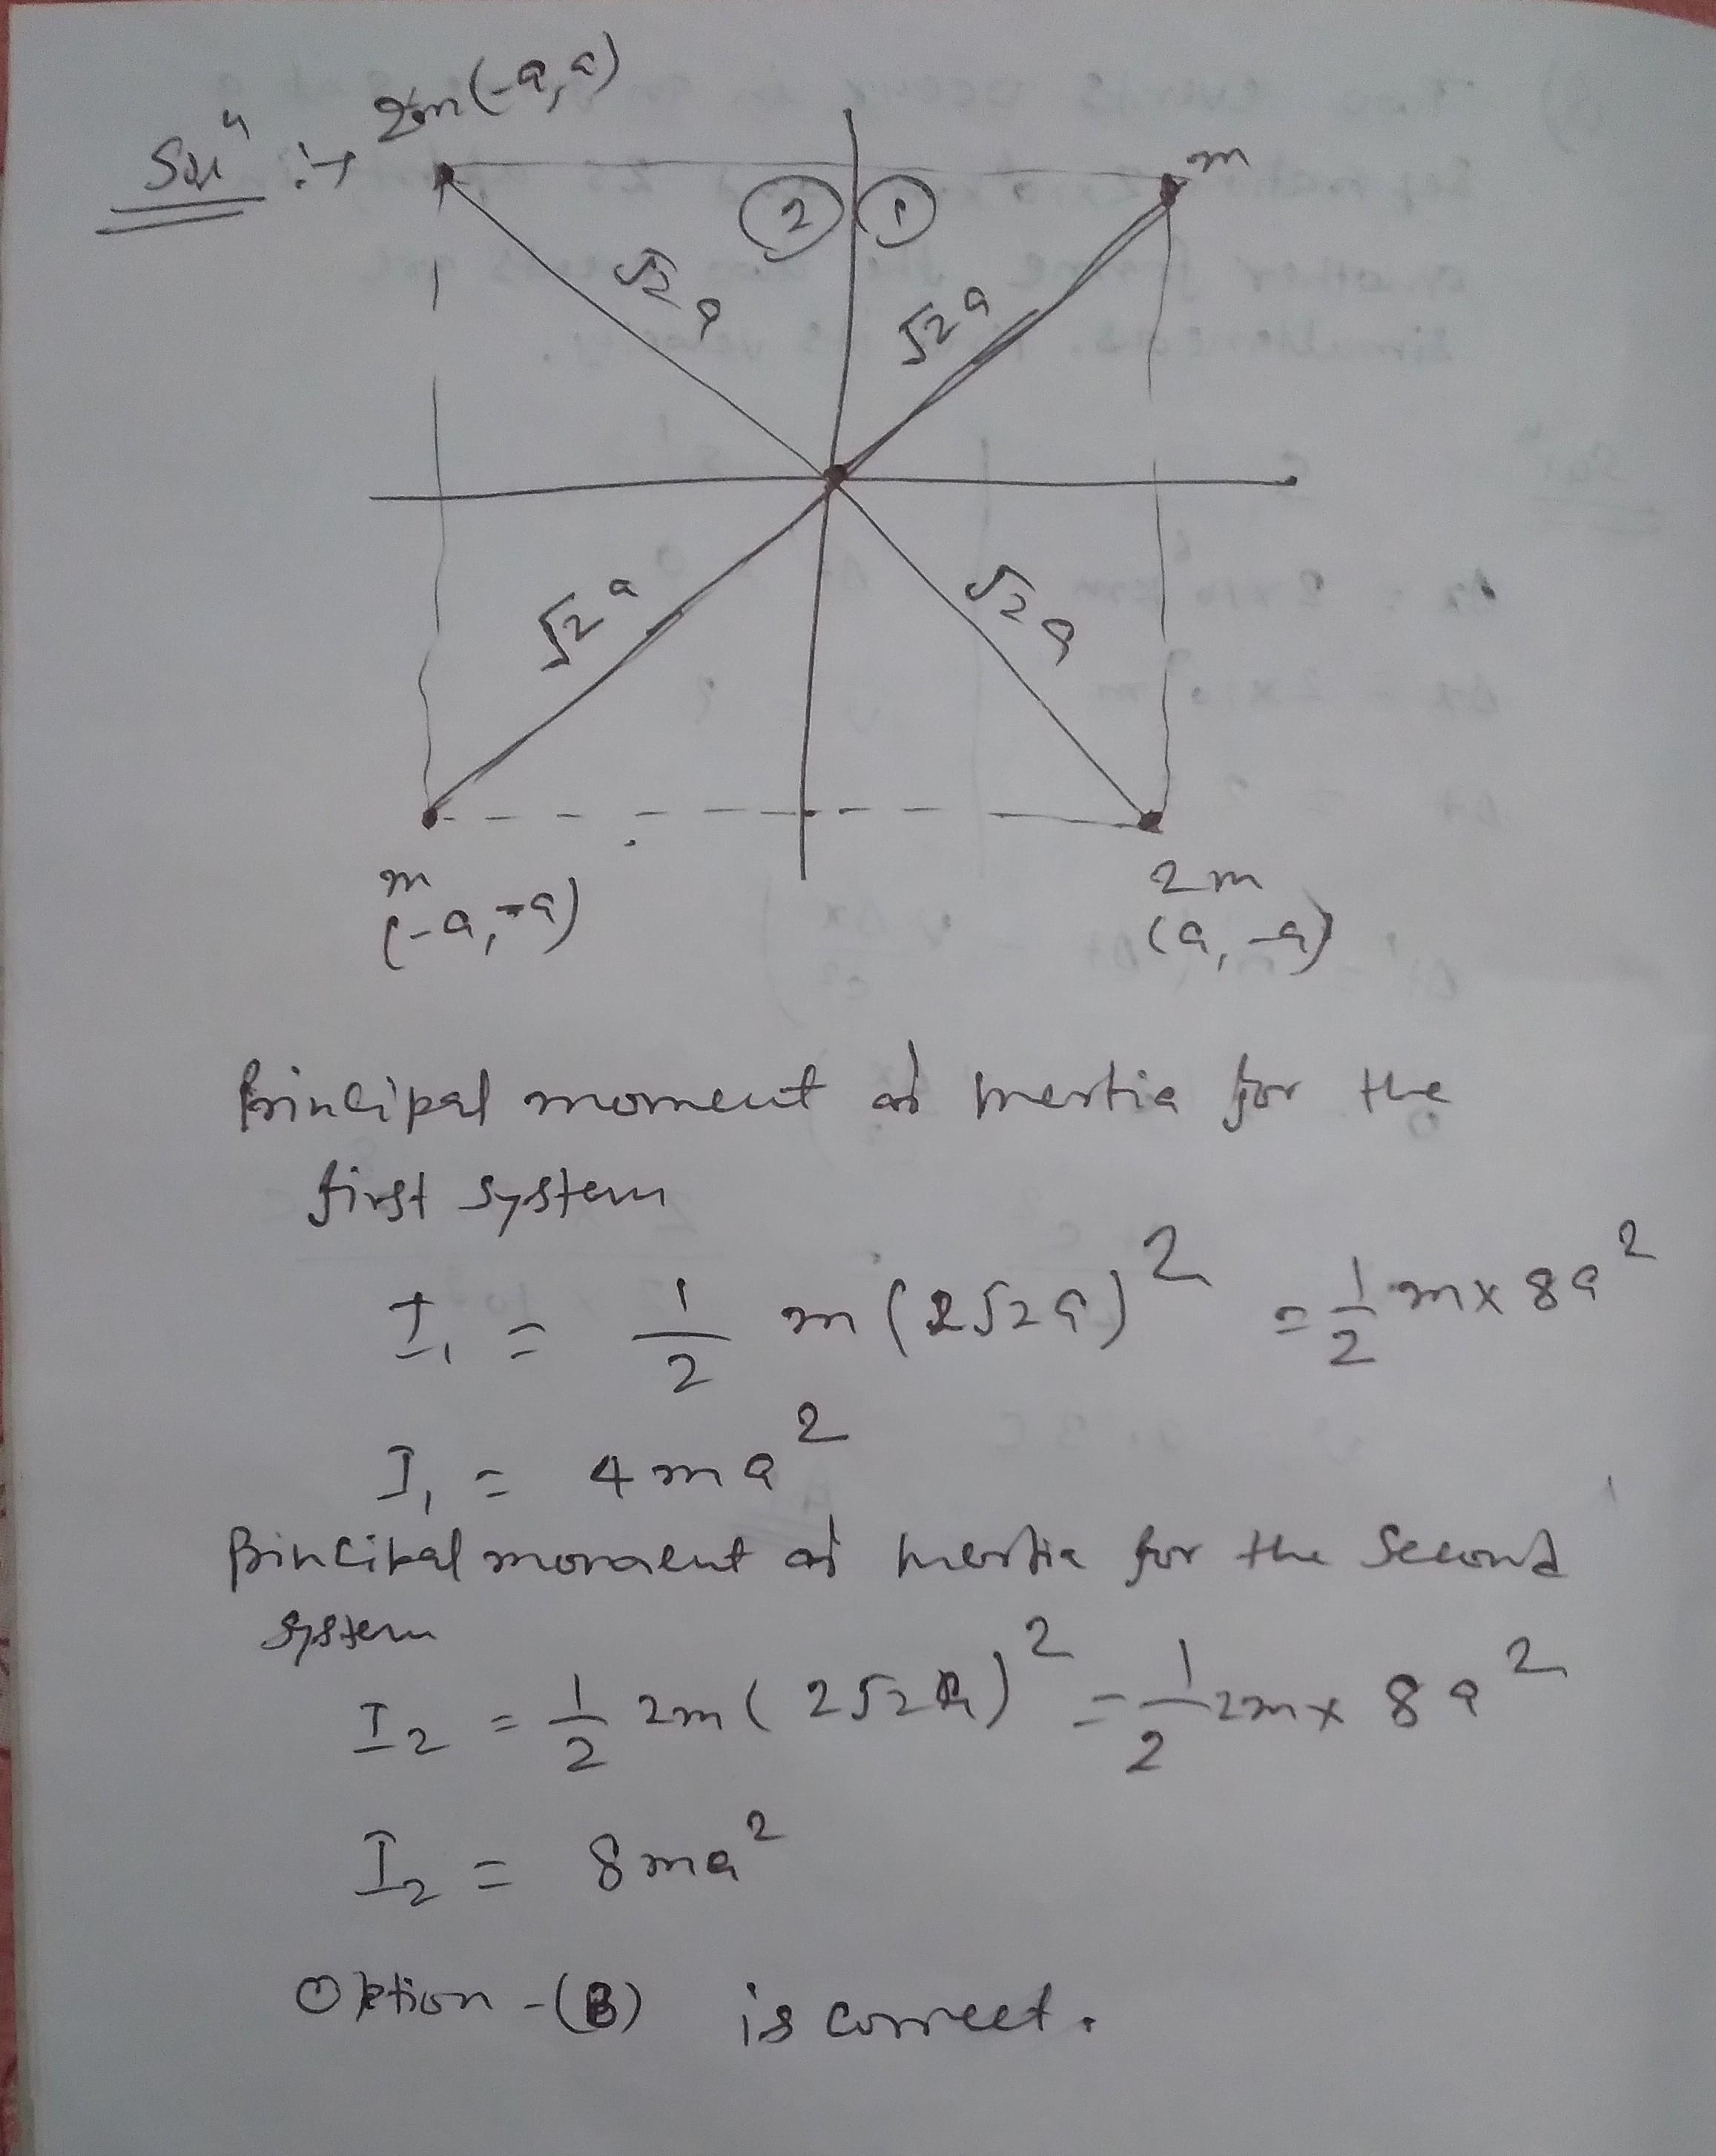 Solⁿ :→ 2m(-a,a)
m
② ①
√2 a √2 a
√2 a √2 a
m 2m
(-a,-a) (a,-a)
Principal moment of Inertia for the
first system
I₁ = 1/2 m(2√2a)² = 1/2 m×8a²
I₁ = 4ma²
Principal moment of Inertia for the Second
system
I₂ = 1/2 2m(2√2a)² = 1/2 2m×8a²
I₂ = 8ma²
Option-(B) is correct.